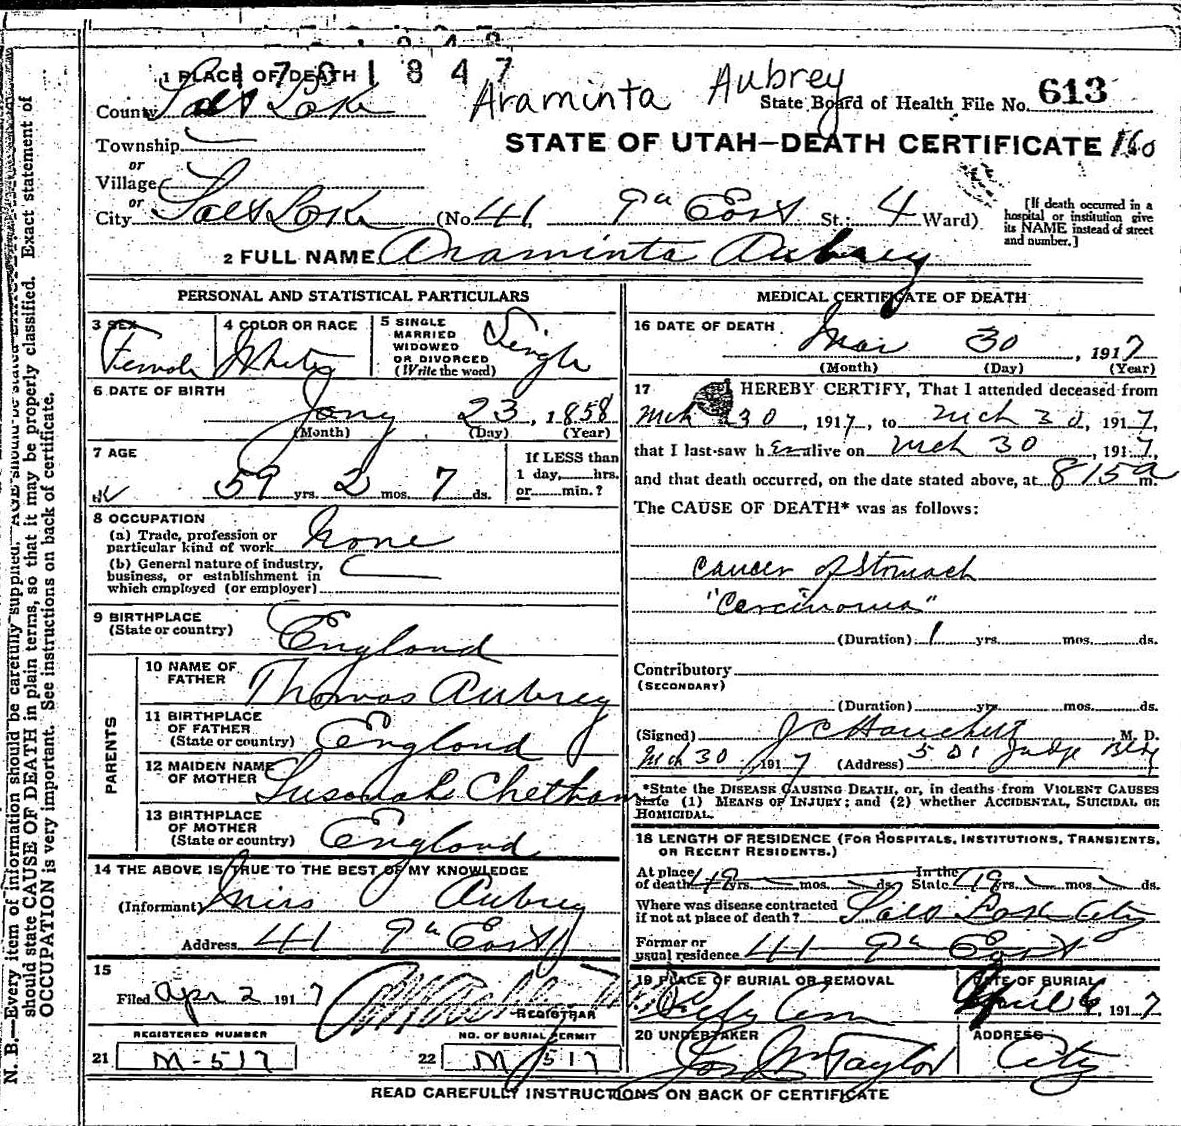 1701847
1 PLACE OF DEATH
County Salt Lake
Araminta Aubrey
State Board of Health File No. 613
Township
or
Village
or
STATE OF UTAH—DEATH CERTIFICATE 160
City Salt Lake (No. 41, 9th East St.; 4 Ward)
[If death occurred in a
hospital or institution give
its NAME instead of street
and number.]
2 FULL NAME Araminta Aubrey
PERSONAL AND STATISTICAL PARTICULARS
3 SEX
Female
4 COLOR OR RACE
White
5 SINGLE
MARRIED
WIDOWED
OR DIVORCED
(Write the word)
Single
6 DATE OF BIRTH
Jany 23, 1858
(Month) (Day) (Year)
7 AGE
59 yrs. 2 mos. 7 ds.
If LESS than
1 day, hrs.
or min.?
8 OCCUPATION
(a) Trade, profession or
particular kind of work None
(b) General nature of industry,
business, or establishment in
which employed (or employer)
9 BIRTHPLACE
(State or country) England
PARENTS
10 NAME OF
FATHER Thomas Aubrey
11 BIRTHPLACE
OF FATHER
(State or country) England
12 MAIDEN NAME
OF MOTHER Susanah Chetham
13 BIRTHPLACE
OF MOTHER
(State or country) England
14 THE ABOVE IS TRUE TO THE BEST OF MY KNOWLEDGE
(Informant) Miss Aubrey
Address 41 9th East
15
Filed Apr 2 1917
REGISTRAR
REGISTERED NUMBER
21 M-517
NO. OF BURIAL PERMIT
22 M 517
MEDICAL CERTIFICATE OF DEATH
16 DATE OF DEATH
Mar 30, 1917
(Month) (Day) (Year)
17 I HEREBY CERTIFY, That I attended deceased from
Mch 30, 1917, to Mch 30, 1917,
that I last saw h er alive on Mch 30, 1917,
and that death occurred, on the date stated above, at 815 a m.
The CAUSE OF DEATH* was as follows:
Cancer of Stomach
"Carcinoma"
(Duration) 1 yrs. mos. ds.
Contributory
(SECONDARY)
(Duration) yrs. mos. ds.
(Signed) J C Hanchett M. D.
Mch 30, 1917 (Address) 501 Judge Bldg
*State the DISEASE CAUSING DEATH, or, in deaths from VIOLENT CAUSES
state (1) MEANS OF INJURY; and (2) whether ACCIDENTAL, SUICIDAL OR
HOMICIDAL.
18 LENGTH OF RESIDENCE (FOR HOSPITALS, INSTITUTIONS, TRANSIENTS,
OR RECENT RESIDENTS.)
At place
of death 49 yrs. mos. ds. In the
State 49 yrs. mos. ds.
Where was disease contracted
if not at place of death? Salt Lake City
Former or
usual residence 41 9th East
19 PLACE OF BURIAL OR REMOVAL
City Cem
DATE OF BURIAL
April 6, 1917
20 UNDERTAKER
Jos Wm Taylor
ADDRESS
City
READ CAREFULLY INSTRUCTIONS ON BACK OF CERTIFICATE
N. B.—Every item of information should be carefully supplied. AGE should be stated
should state CAUSE OF DEATH in plain terms, so that it may be properly classified. Exact statement of
OCCUPATION is very important. See instructions on back of certificate.